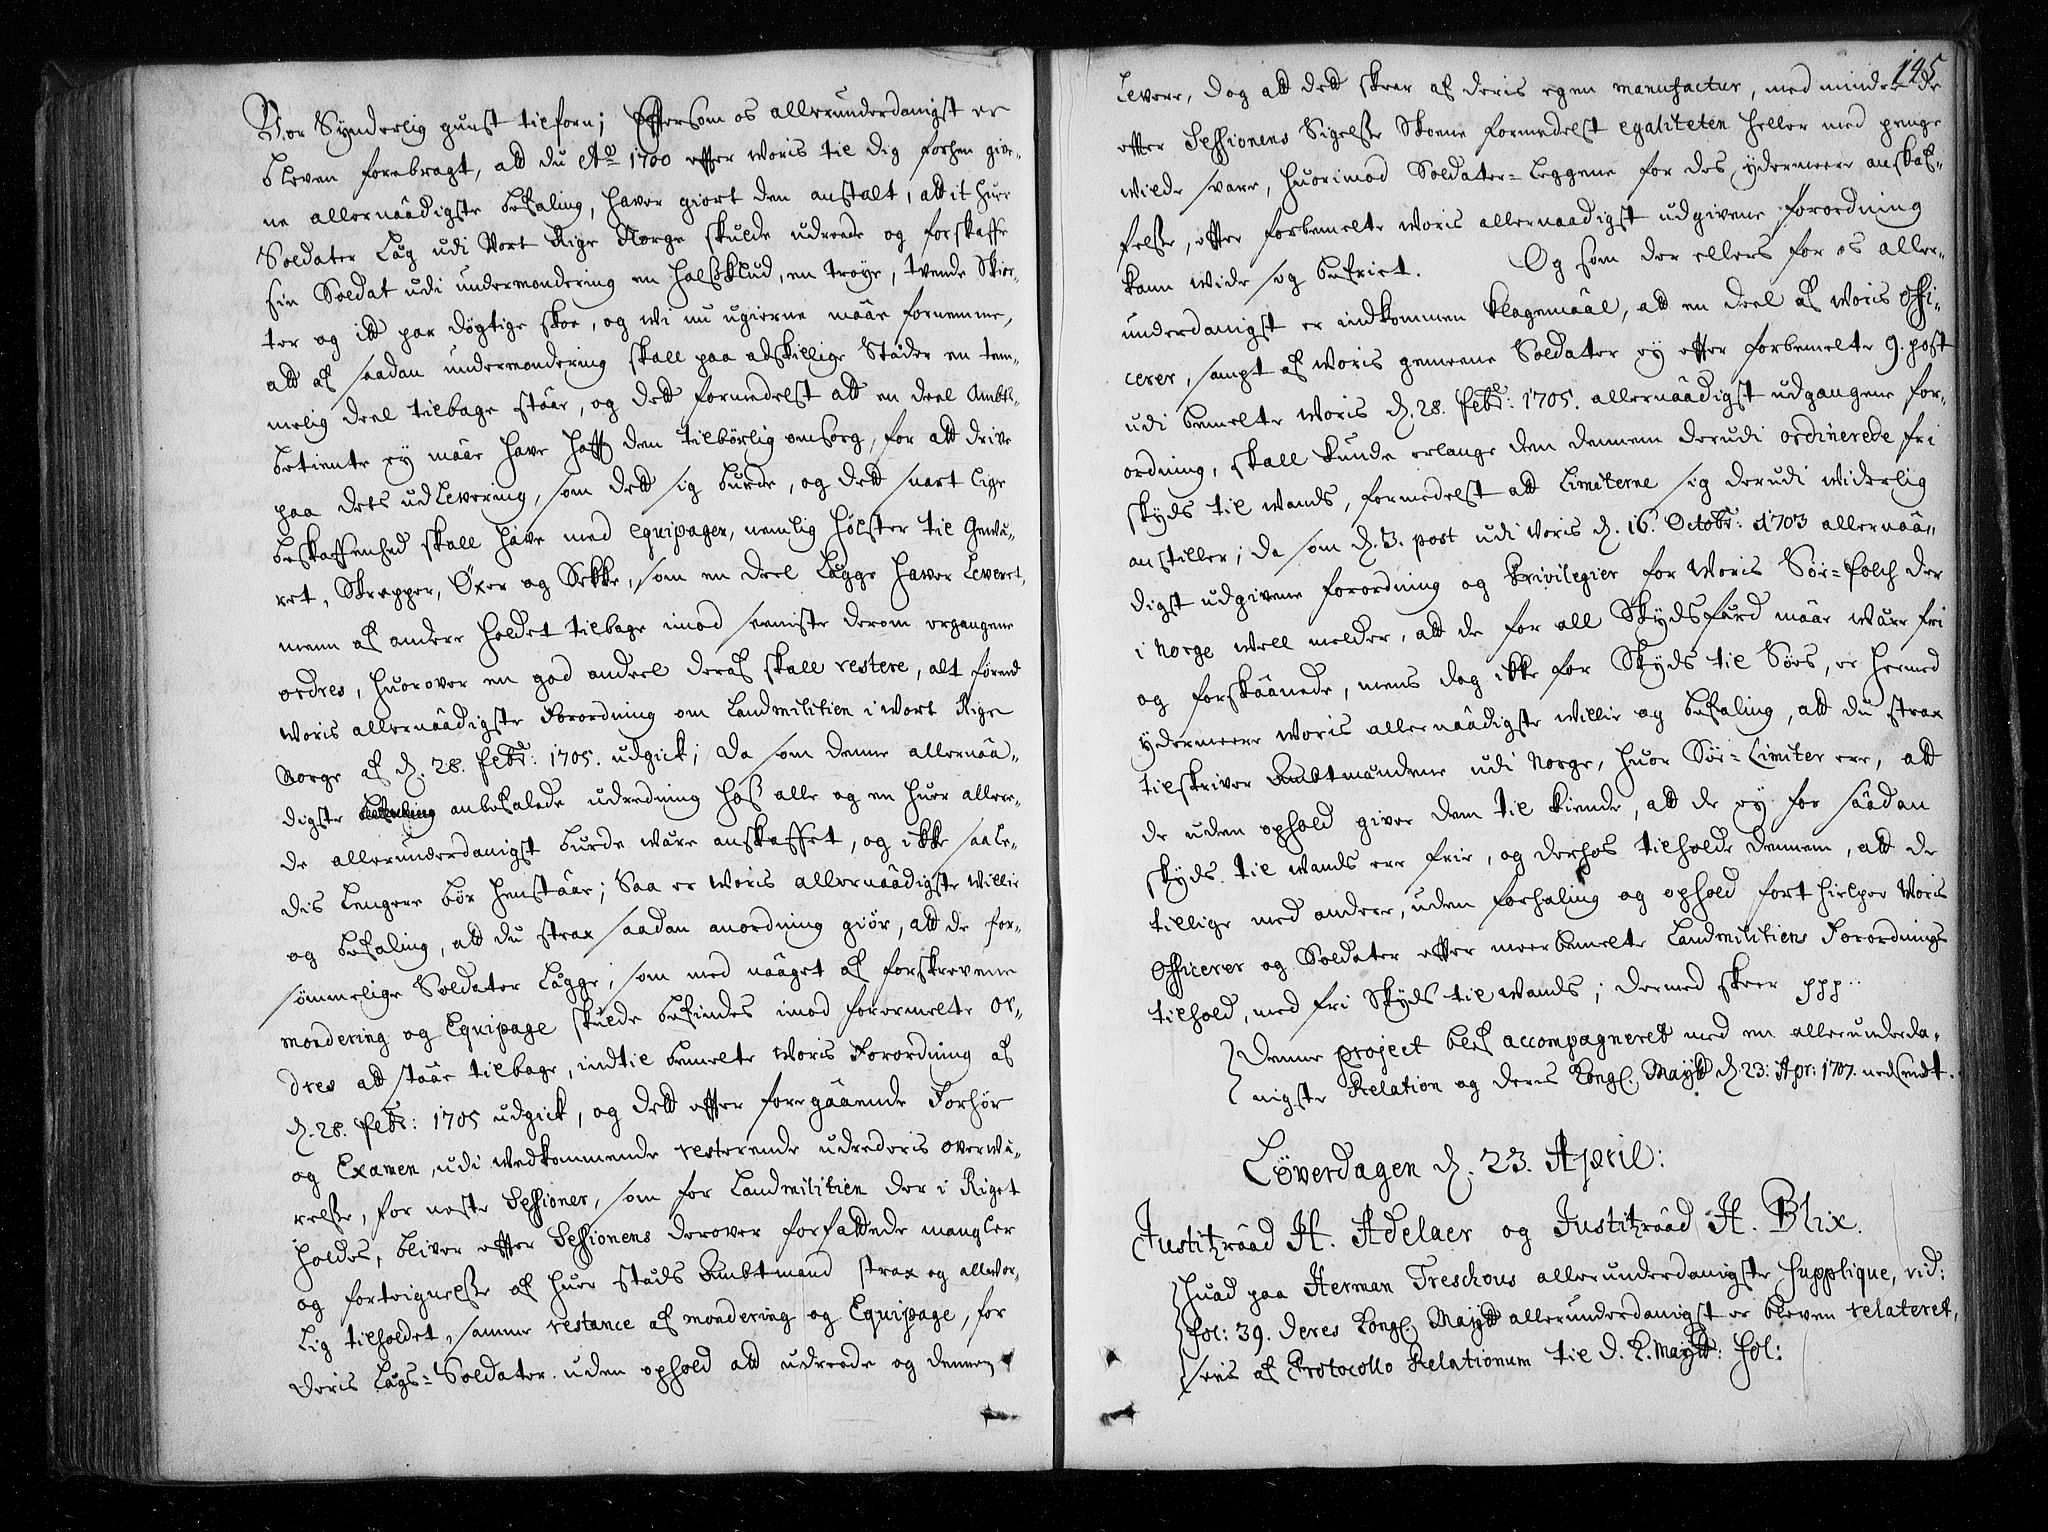 Vor Synderlig gunst tilforn; Eftersom os allerunderdanigst er
bleven forebragt, att du Aō 1700 efter Woris til dig forhen give-
ne allernäädigste befaling, haver giort den anstalt, att it huer
Soldater Lag udi Vort Rige Norge skulde udreede og forskaffe
sin Soldat udi undermondering en Halsklud, en trøye, tvende Skior-
ter og itt par døgtige skoe, og Wi nu ugierne määe fornemme,
att af saadan undermondering skall paa adskillige Stæder en tem-
melig deel tilbage stäär, og dett formedelst att en deel Ambts-
betiente ey määe have hafft den tilbørlig omsorg, for att drive
paa dets udlevering, som dett sig burde, og dett snart lige
beskaffenhed skall have med equipagen, nemlig Hølster til Gevæ-
ret, Skrepper, Øxer og Sekke, som en deel Lægge haver leveret,
menn af andere holdet tilbage imod seeniste derom ergangene
ordres, huorover en god andeel deraf skall restere, alt førend
Woris allernäädigste Forordning om Landmilitien i Wort Rige
Norge af d. 28. Febr: 1705. udgick; Da som denne allernää-
digste befaling anbefalede udredning hoss alle og en huer allere-
de allerunderdanigst burde være anskaffet, og ikke saale-
dis lengere bør henstäär; Saa er Woris allernäädigste Willie
og befaling, att du strax saadan anordning giør, att de for-
sømmelige Soldater Lægge, som med nääget af forskrevene
mondering og Equipage skulde befindes imod forermelte Or-
dres att stäär tilbage, indtil bemelte Woris Forordning af
d. 28. Febr: 1705 udgick, og dett efter foregääende Forhør
og Examen, udi Wedkommende resterende udrederis overvæ-
relse, for neste Sessioner, som for Landmilitien der i Riget
holdes, bliver efter Sessionens derover forfattede mangler
og forteignelse af huer stæds Ambtmand strax og alvor-
lig tilholdet, samme restance af mondering og Equipage, for
deris Lægs-Soldater uden ophold att udreede og dennem
145
levere, dog att dett skeer af deris egen manufactur, med mindre de
efter Sessionens Sigelse skoene formedelst egaliteten heller med penge
wilde svare, huorimod Soldater-Leggene for des ydermeere anskaf-
felse, efter forbemelte Woris allernaadigst udgivene Forordning
kann wide sig befriet. Og som der ellers for os aller-
underdanigst er indkommen Klagemäål, att en deel af Woris Offi-
cerer, sampt af Woris gemeene Soldater ey efter forbemelte 9. post
udi bemelte Woris d. 28. Febr: 1705. allernäädigst udgangene for-
ordning, skall kunde erlange den dennem derudi ordinerede fri
skyds til Wands, formedelst att Limiterne sig derudi widerlig
anstiller; da som d. 3. post udi Woris d. 16. Octobr: 1703 allernää-
digst udgivene Forordning og Privilegier for Woris Søe-folch der
i Norge well melder, att de for all Skydsfærd määe være fri
og forskäånede, mens dog ikke for Skyds til Søes, er hermed
ydermeere Woris allernäädigste Willie og befaling, att du strax
tilskriver Ambtmændene udi Norge, huor Søe-Limiter ere, att
de uden ophold giver dem til kiende, att de ey for säådan
skyds til Wands ere frie, og derhos tilholde dennem, att de
tillige med andere, uden forhaling og ophold forthielper Woris
Officerer og Soldater efter meerbemelte Landmilitiens Forordnings
tilhold, med fri Skyds til Wands; dermed skeer ppp..
Denne project blef accompagneret med en allerunderda-
nigste Relation og deris Kongl. Maytt d. 23: Apr: 1707. nedsendt.
Löverdagen d. 23. April:
Justitzrääd H. Adelaer og Justitzrääd H. Blix.
Huad paa Herman Treschous allerunderdanigste Supplique, vid:
fol: 39. deres Kongl. Maytt allerunderdanigst er bleven relateret,
sees af Protocollo Relationum til d. K. Maytt: fol: